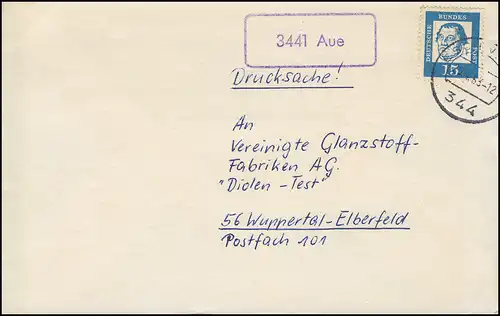 3441 Aue
DEUTSCHE BUNDESPOST
15
63-12
344
Drucksache!
An
Vereinigte Glanzstoff-
Fabriken AG.
"Diolen-Test"
56 Wuppertal-Elberfeld
Postfach 101